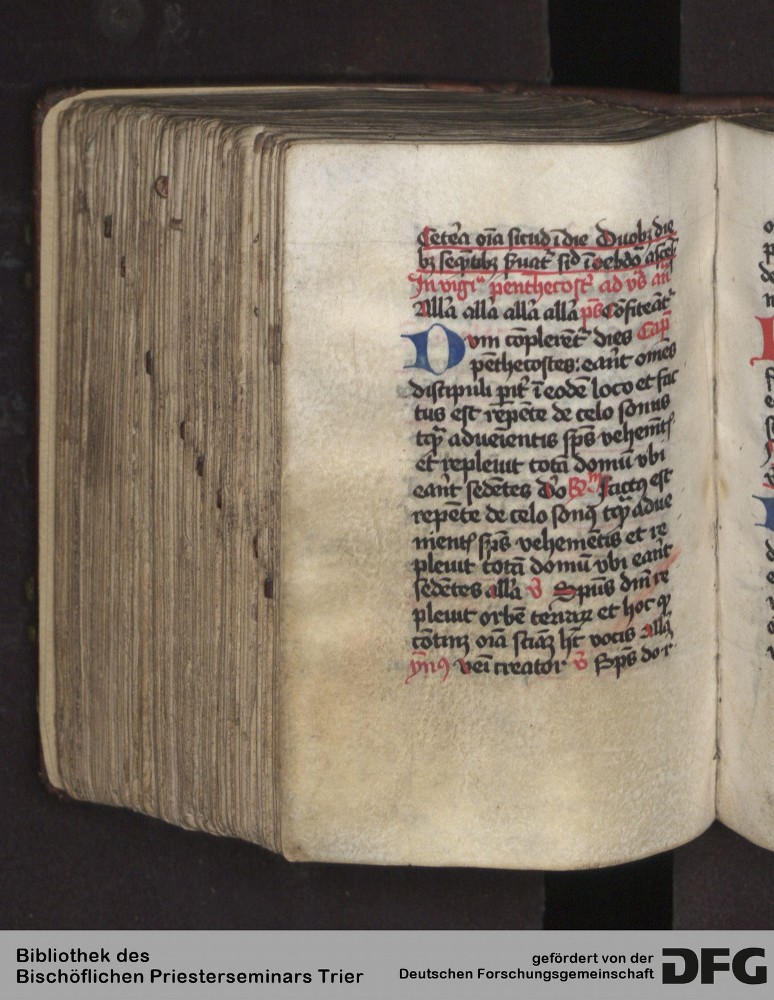 Cetera oīa sicud ī die Duobꝫ die
bꝫ seqn̄tibꝫ sed ī oebdō ascēs
In vigiᵃ penthecostˢ ad vs̄ añ
Alla alla alla alla ps̄ Cōfiteāt᷑
Dvm cōplerēt᷑ dies Cap̄
pēthecostes: eān̄t om̄es
discipuli pit᷑ ī eodē loco et fac
tus est repēte de celo sonus
tq̄ȝ adueientis sp̄s vehemēt᷑
et repleuit totā domū vbi
eān̄t sedētes dō ℞ᵐ Factꝯ est
repēte de celo sonꝯ tq̄ȝ adue
nientˢ sp̄s vehemētis et re
pleuit totā domū vbi eān̄t
sedētes alla v̄ Spūs dnī re
pleuit orbē terrarꝝ et hoc qȝ
cōtinȝ oīa sciāȝ hȝt vocis alla
ymꝯ veī creator v̄ Sp̄s do r
Bibliothek des
Bischöflichen Priesterseminars Trier
gefördert von der
Deutschen Forschungsgemeinschaft
DFG